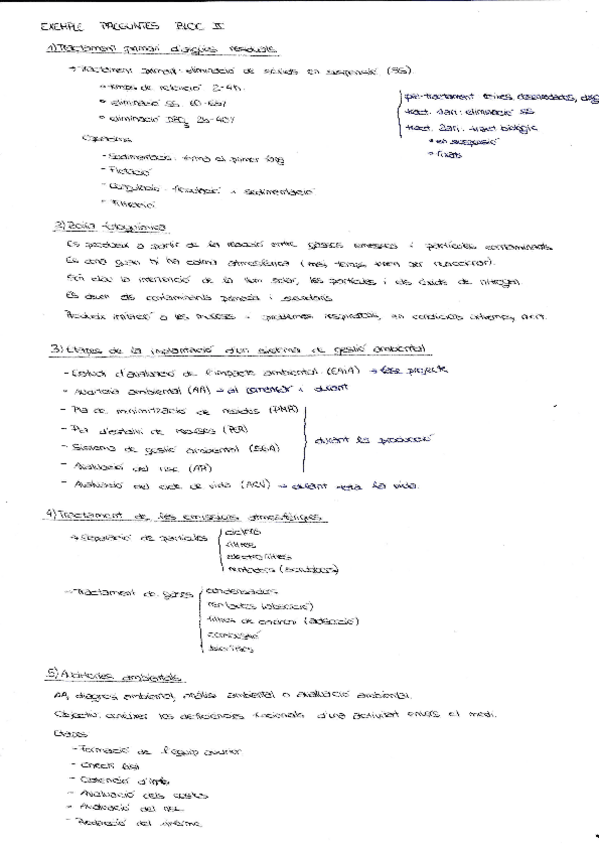 EXEMPLE PREGUNTES BLOC II
1) Tractament primari d'aigües residuals
→ Tractament primari: eliminació de sòlids en suspensió (SS)
• temps de retenció 2-4h.
• eliminació SS 60-65%
• eliminació DBO5 20-40%
pre-tractament
tract. 1ari: eliminació SS
tract. 2ari: tract biològic
• en suspensió
• fixats
- Sedimentació
- Flotació
- Coagulació - floculació + sedimentació
- Filtració
2) Boira fotoquímica
Es produeix a partir de la reacció entre gasos emesos i partícules contaminants.
Es dona quan hi ha calma atmosfèrica (més temps per reaccionar).
la intervenció de la llum solar, les partícules i els òxids de nitrogen.
Es deuen als contaminants primaris i secundaris
Produeix irritació a les mucoses i problemes respiratoris, en condicions extremes, mort.
3) Etapes de la implantació d'un sistema de gestió ambiental
- Estudi d'avaluació de l'impacte ambiental (EAIA) → fase projecte
- Auditoria ambiental (AA) → al començar i durant
- Pla de minimització de residus (PMR)
- Pla d'estalvi de recursos (PER)
- Sistema de gestió ambiental (SGA)
- Avaluació del risc (AR)
durant la producció
- Avaluació del cicle de vida (ACV) → durant tota la vida.
4) Tractament de les emissions atmosfèriques
→ Separació de partícules
ciclons
filtres
electrofiltres
rentadors (scrubbers)
- Tractament de gasos
condensadors
rentadors (absorció)
filtres de carbó (adsorció)
combustió
biofiltres
5) Auditories ambientals
AA, diagnosi ambiental, anàlisi ambiental o avaluació ambiental.
Objectiu: conèixer les deficiències funcionals d'una activitat envers el medi.
Etapes
- Formació de l'equip auditor
- Check list
- Obtenció d'info
- Avaluació dels costos
- Avaluació del risc
- Redacció del informe